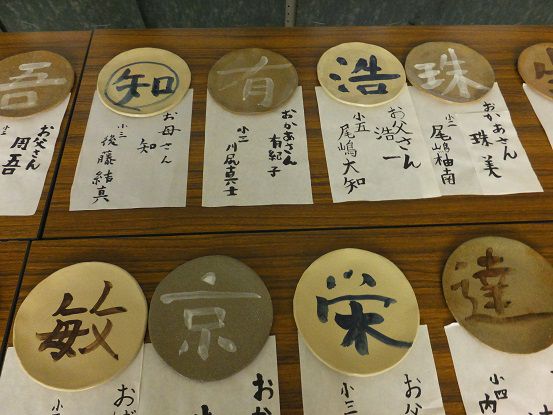 吾
お父さん
周吾
知
お母さん
知
小三
後藤結真
有
おかあさん
有紀子
小二
川尻真士
浩
お父さん
浩一
小五
尾嶋大知
珠
おかあさん
珠美
小二
尾嶋柚南
敏
おば
小
京
おか
栄
お父
小三
達
小四
内